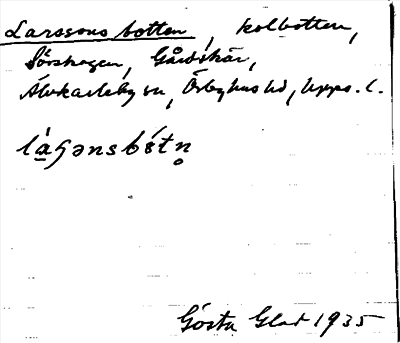 Larssons botten, kolbotten,
Sörskogen, Gårdskär,
Älvkarleby sn, Örbyhus hd, Upps. l.
Gösta Glad 1935